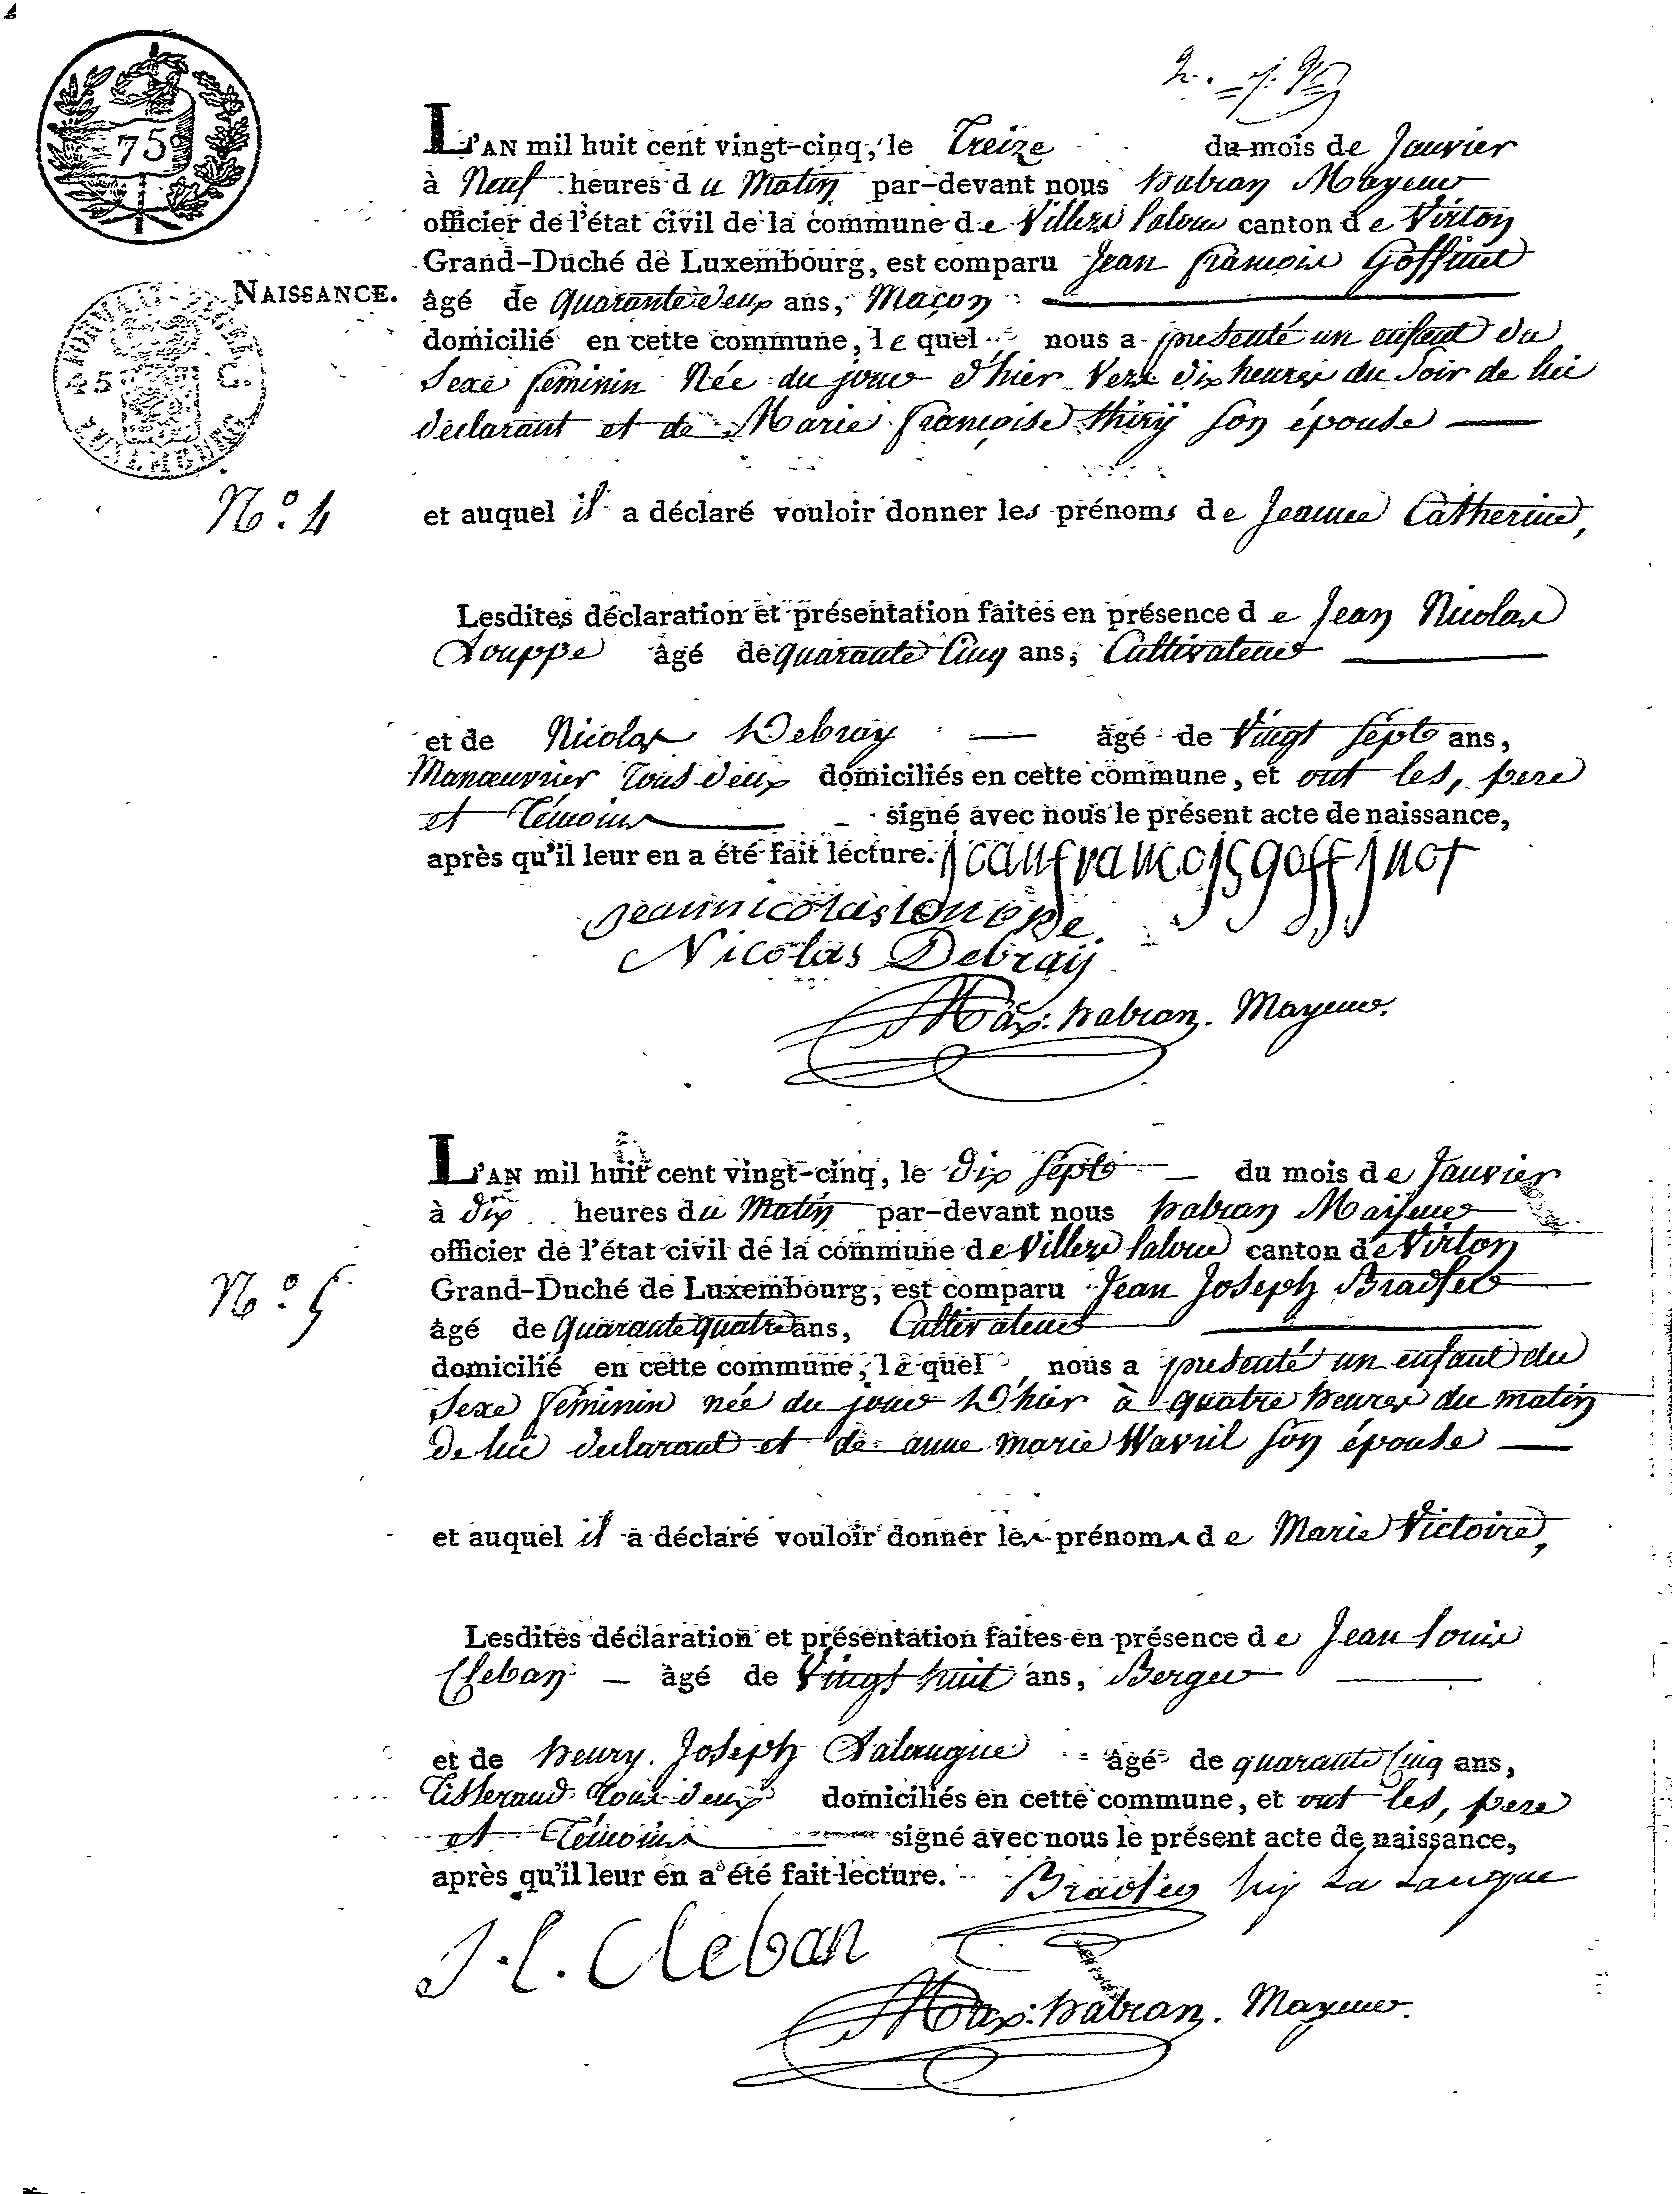 75
L'AN mil huit cent vingt-cinq, le Treize du mois de Janvier
à Neuf heures du Matin par-devant nous habran Mayeur
officier de l'état civil de la commune de Villers Laloue canton de Virton
Grand-Duché de Luxembourg, est comparu Jean François Goffinet
NAISSANCE.
âgé de quarante deux ans, Maçon
domicilié en cette commune, lequel nous a presenté un enfant du
Sexe feminin Née du jour d'hier Vers dix heures du Soir de lui
declarant et de Marie françoise thirÿ son épouse
N.º 4
et auquel il a déclaré vouloir donner les prénoms de Jeanne Catherine,
Lesdites déclaration et présentation faites en présence de Jean Nicolas
Louppe âgé de quarante Cinq ans, Cultivateur
et de Nicolas Debray âgé de Vingt Sept ans,
Manœuvrier tous deux domiciliés en cette commune, et ont les, pere
et Témoins signé avec nous le présent acte de naissance,
après qu'il leur en a été fait lecture. jeanfrancois goffinot
jeannicolaslouppe
Nicolas Debraÿ
Max: habran. Mayeur.
L'AN mil huit cent vingt-cinq, le dix Sept du mois de Janvier
à dix heures du Matin par-devant nous habran Maÿeur
officier de l'état civil de la commune de Villers Laloue canton de Virton
N.º 5
Grand-Duché de Luxembourg, est comparu Jean Joseph Bradfer
âgé de quarante quatre ans, Cultivateur
domicilié en cette commune, lequel nous a presenté un enfant du
Sexe feminin née du jour D'hier à quatre heures du matin
de lui declarant et de anne marie Wavril son épouse
et auquel il a déclaré vouloir donner les prénoms de Marie Victoire,
Lesdites déclaration et présentation faites en présence de Jean Louis
Cleban âgé de Vingt huit ans, Berger
et de henry Joseph Lalangue âgé de quarante Cinq ans,
Tisserand tous deux domiciliés en cette commune, et ont les, pere
et Témoins signé avec nous le présent acte de naissance,
après qu'il leur en a été fait lecture. Bradfer La Langue
J. l. Cleban
Max: habran. Mayeur.